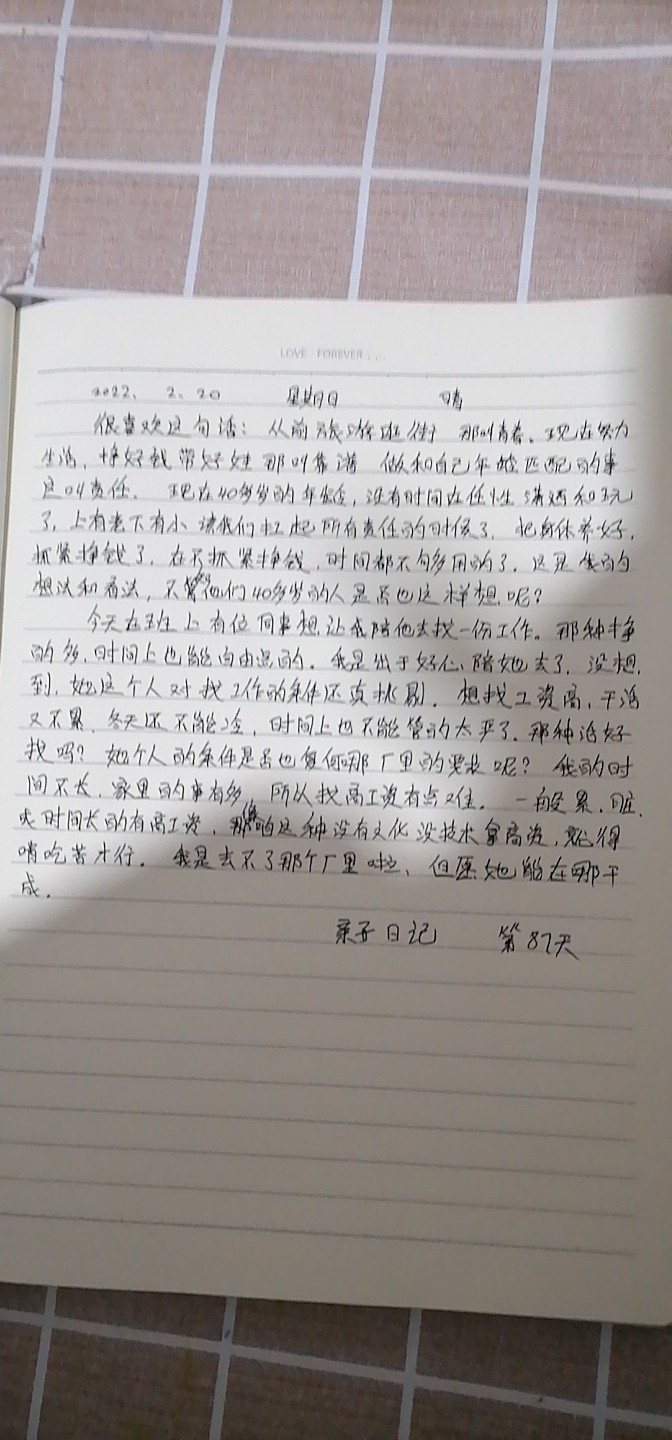 LOVE FOREVER...
2022、2、20 星期日 晴
很喜欢这句话：从前旅游逛街 那叫青春、现在努力
生活，挣好钱带好娃那叫靠谱 做和自己年龄匹配的事
这叫责任. 现在40多岁的年龄，没有时间在任性潇洒和玩
了，上有老下有小 该我们扛起所有责任的时候了. 把身体养好，
抓紧挣钱了. 在不抓紧挣钱，时间都不句多用的了. 这是我的
想法和看法，不管他们40多岁的人是否也这样想呢？
今天在班上有位同事想让我陪他去找一份工作。那种挣
的多，时间上也能自由点的. 我是出于好心陪她去了，没想
到，她这个人对找工作的条件还真挑剔. 想找工资高，干活
又不累、冬天还不能冷，时间上也不能管的太严了. 那种活好
找吗？她个人的条件是否也复何那厂里的要求呢？我的时
间不长、家里的事有多，所以找高工资有点难. 一般累、脏、
时间长的有高工资，那像咱这种没有文化没技术拿高资，就得
啃吃苦才行. 我是去不了那个厂里啦、但愿她能在哪干
成.
亲子日记 第87天